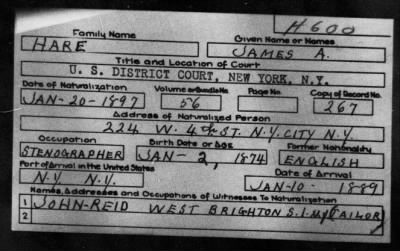 H600
Family Name Given Name or Names
HARE JAMES A.
Title and Location of Court
U. S. DISTRICT COURT, NEW YORK, N.Y.
Date of Naturalization Volume or Bundle No. Page No. Copy of Record No.
JAN-20-1897 56 267
Address of Naturalized Person
224 W. 4th ST. N.Y. CITY N.Y.
Occupation Birth Date or Age Former Nationality
STENOGRAPHER JAN-2, 1874 ENGLISH
Port of Arrival in the United States Date of Arrival
N.Y. N.Y. JAN-10-1889
Names, Addresses and Occupations of Witnesses To Naturalization
1 JOHN-REID WEST BRIGHTON S.I. TAILOR
2